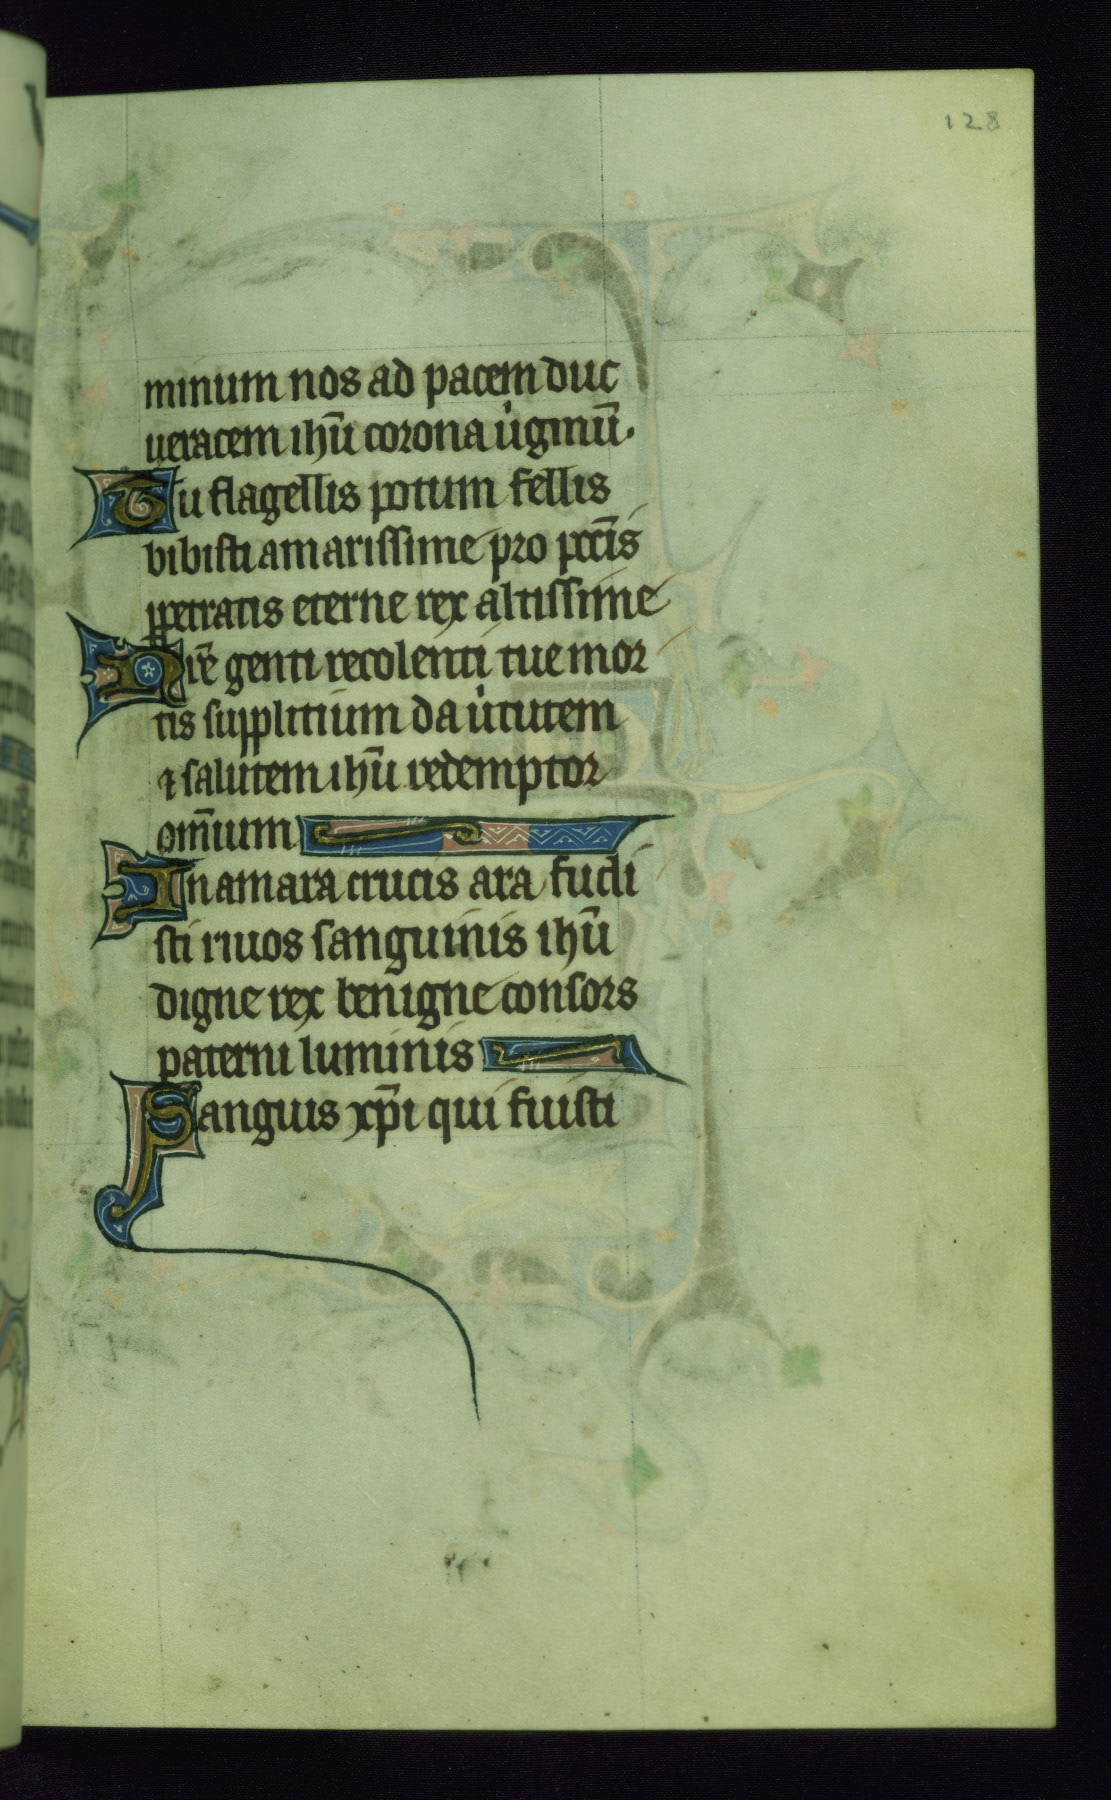 128
minum nos ad pacem duc
ueracem ihū corona uͥginū.
Tu flagellis potum fellis
bibisti amarissime pro pcc̄is
ꝑpetratis eterne rex altissime
Nr̄e genti recolenti tue mor
tis supplitium da uͥtutem
⁊ salutem ihū redemptor
om̄ium
In amara crucis ara fudi
sti riuos sanguinis ihū
digne rex benigne consors
paterni luminis
Sanguis xp̄i qui fuisti